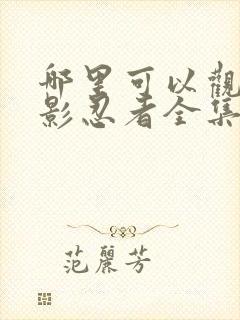 哪里可以觀
影忍者全集
范麗芳